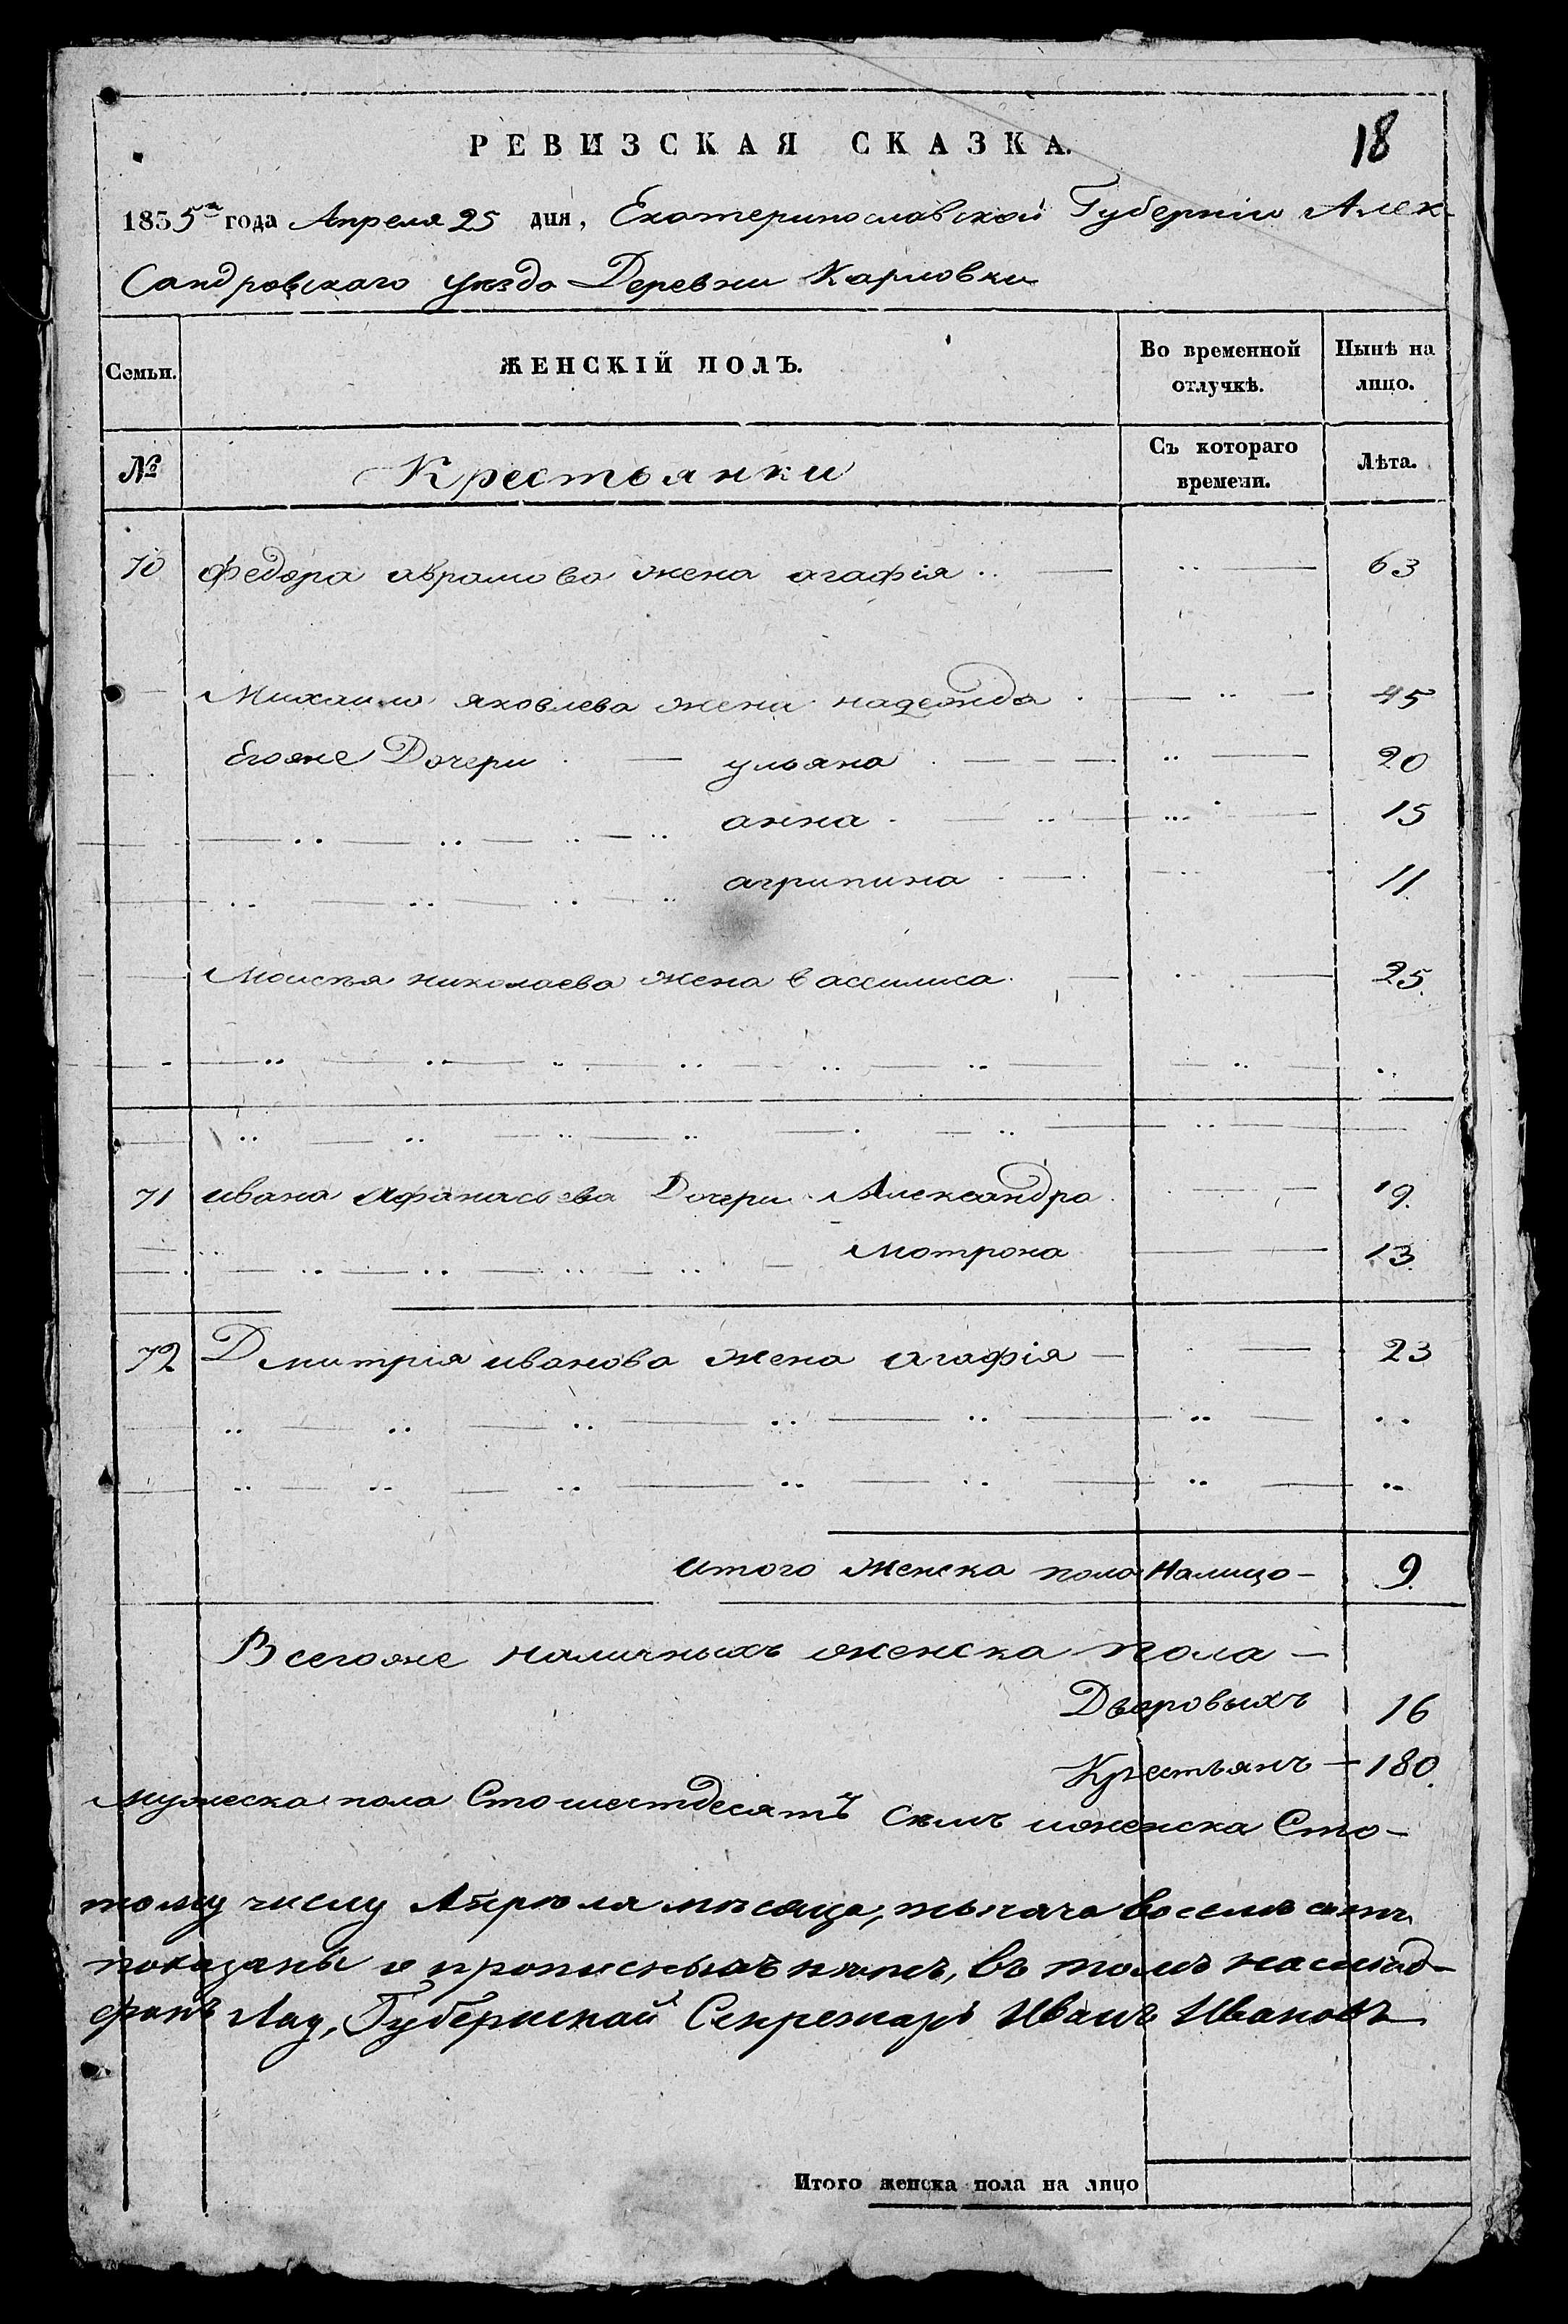 РЕВИЗСКАЯ СКАЗКА.
18
1835го года Апреля 25 дня, Екатеринославской Губерніи Алек-
сандровскаго уѣзда Деревни Карловки
Семьи. ЖЕНСКІЙ ПОЛЪ. Во временной отлучкѣ. Нынѣ на лицо.
№ Крестьянки Съ котораго времени. Лѣта.
70 Федора аврамова жена агафія 63
Михаила яковлева жена надежда 45
Егоже Дочери ульяна 20
анна 15
агрипина 11
Моисѣя николаева жена вассилиса 25.
71 ивана Афанасьева Дочери Александра 19.
мотрона 13.
72 Дмитрія иванова жена агафія 23
итого женска пола налицо 9.
Всегоже наличныхъ женска пола
Дворовыхъ 16
Крестьянъ 180.
Мужеска пола Сто шестдесятъ семь иженска Сто-
тому числу Апрѣля мѣсяца, тысяча восемь сотъ
показаны и прописныхъ нѣтъ, въ томъ
Губернскай Секретарь Иванъ Ивановъ
Итого женска пола на лицо